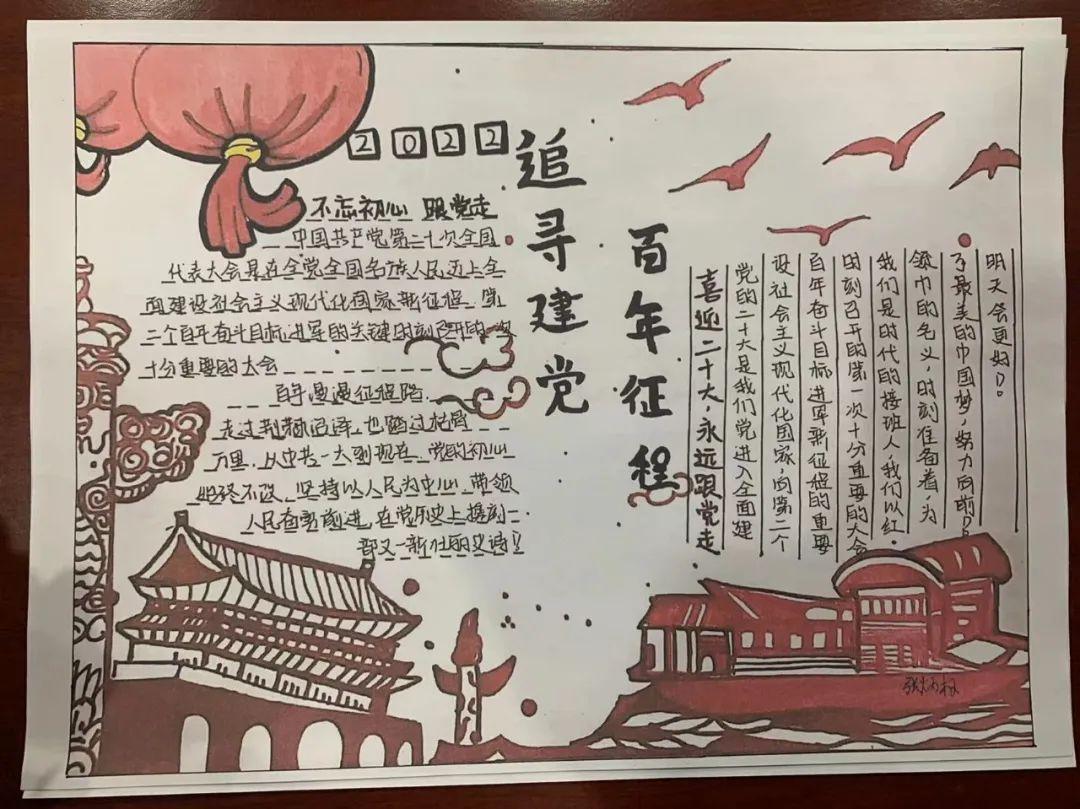 2022
追寻建党
百年征程
不忘初心 跟党走
中国共产党第二十次全国
代表大会是在全党全国各族人民迈上全
面建设社会主义现代化国家新征程、第
二个百年奋斗目标进军的关键时刻召开的一次
十分重要的大会
百年漫漫征程路
走过荆棘沼泽,也踏过枯骨
万里,从中共一大到现在,党的初心
始终不改,坚持以人民为中心,带领
人民奋勇前进,在党历史上镌刻一
部又一新壮丽史诗!
喜迎二十大,永远跟党走
党的二十大是我们党进入全面建
设社会主义现代化国家,向第二个
百年奋斗目标进军新征程的重要
时刻召开的第一次十分重要的大会
我们是时代的接班人,我们以红
领巾的名义,时刻准备着,为
了最美的巾国梦,努力向前!
明天会更好!